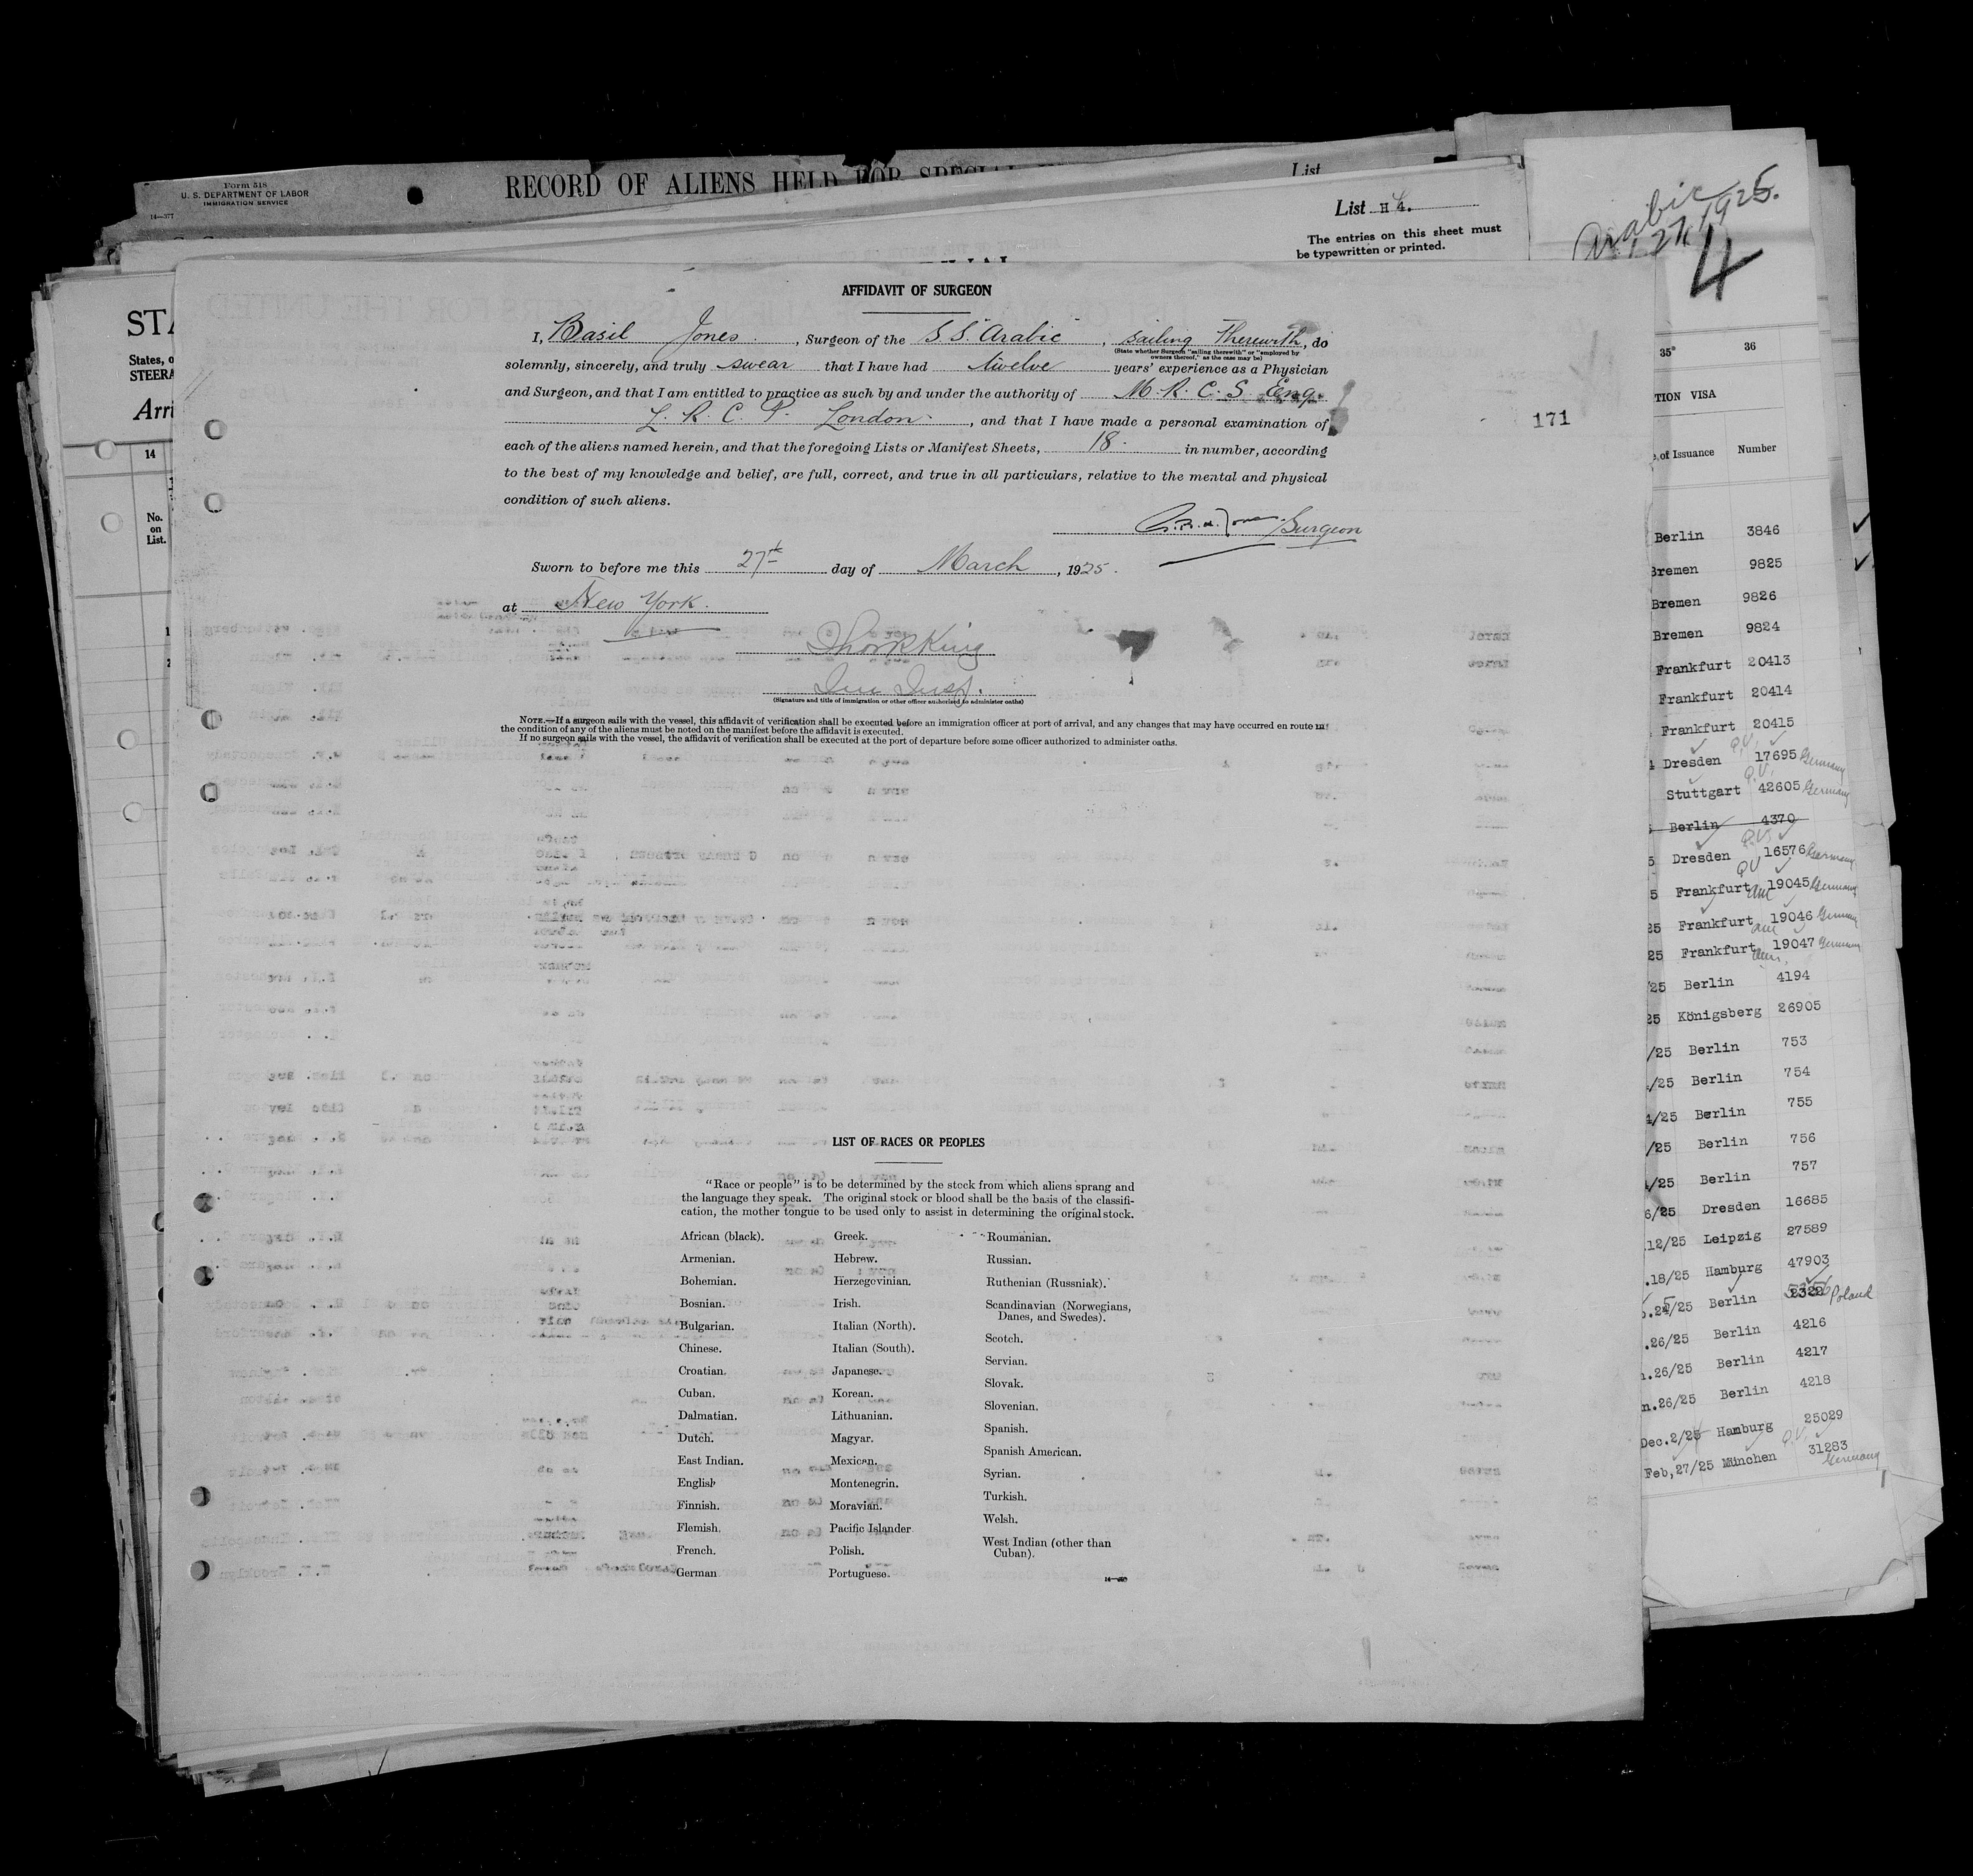 Form 518
U. S. DEPARTMENT OF LABOR
IMMIGRATION SERVICE
14—377
RECORD OF ALIENS HELD FOR SPECIAL
List
List H 4.
The entries on this sheet must
be typewritten or printed.
Arabic
1925.
4
STA
States, o
STEERA
Arri
14
No.
on
List.
AFFIDAVIT OF SURGEON
I, Basil Jones, Surgeon of the S.S. Arabic, sailing Therewith, do
(State whether Surgeon "sailing therewith" or "employed by
owners thereof," as the case may be)
solemnly, sincerely, and truly swear that I have had twelve years' experience as a Physician
and Surgeon, and that I am entitled to practice as such by and under the authority of M. R. C. S. Eng.
L. R. C. P. London, and that I have made a personal examination of
each of the aliens named herein, and that the foregoing Lists or Manifest Sheets, 18 in number, according
to the best of my knowledge and belief, are full, correct, and true in all particulars, relative to the mental and physical
condition of such aliens.
Jones. Surgeon
Sworn to before me this 27th day of March, 1925.
at New York.
King
Imm Insp.
(Signature and title of immigration or other officer authorized to administer oaths)
NOTE.—If a surgeon sails with the vessel, this affidavit of verification shall be executed before an immigration officer at port of arrival, and any changes that may have occurred en route in
the condition of any of the aliens must be noted on the manifest before the affidavit is executed.
If no surgeon sails with the vessel, the affidavit of verification shall be executed at the port of departure before some officer authorized to administer oaths.
LIST OF RACES OR PEOPLES
"Race or people" is to be determined by the stock from which aliens sprang and
the language they speak. The original stock or blood shall be the basis of the classifi-
cation, the mother tongue to be used only to assist in determining the original stock.
African (black).
Armenian.
Bohemian.
Bosnian.
Bulgarian.
Chinese.
Croatian.
Cuban.
Dalmatian.
Dutch.
East Indian.
English
Finnish.
Flemish.
French.
German
Greek.
Hebrew.
Herzegovinian.
Irish.
Italian (North).
Italian (South).
Japanese.
Korean.
Lithuanian.
Magyar.
Mexican.
Montenegrin.
Moravian.
Pacific Islander
Polish.
Portuguese.
Roumanian.
Russian.
Ruthenian (Russniak).
Scandinavian (Norwegians,
Danes, and Swedes).
Scotch.
Servian.
Slovak.
Slovenian.
Spanish.
Spanish American.
Syrian.
Turkish.
Welsh.
West Indian (other than
Cuban).
171
35* 36
TION VISA
of Issuance Number
Berlin 3846
Bremen 9825
Bremen 9826
Bremen 9824
Frankfurt 20413
Frankfurt 20414
Frankfurt 20415
Dresden Q.V. 17695 Germany
Stuttgart Q.V. 42605 Germany
Berlin 4370
5 Dresden Q.V. 16576 Germany
5 Frankfurt QV 19045 Germany
25 Frankfurt 19046 Germany
25 Frankfurt 19047 Germany
/25 Berlin 4194
25 Königsberg 26905
/25 Berlin 753
/25 Berlin 754
4/25 Berlin 755
/25 Berlin 756
/25 Berlin 757
6/25 Dresden 16685
.12/25 Leipzig 27589
.18/25 Hamburg 47903
/25 Berlin Poland
.26/25 Berlin 4216
.26/25 Berlin 4217
n.26/25 Berlin 4218
Dec.2/25 Hamburg 25029
Feb,27/25 München Q.V. 31283 Germany